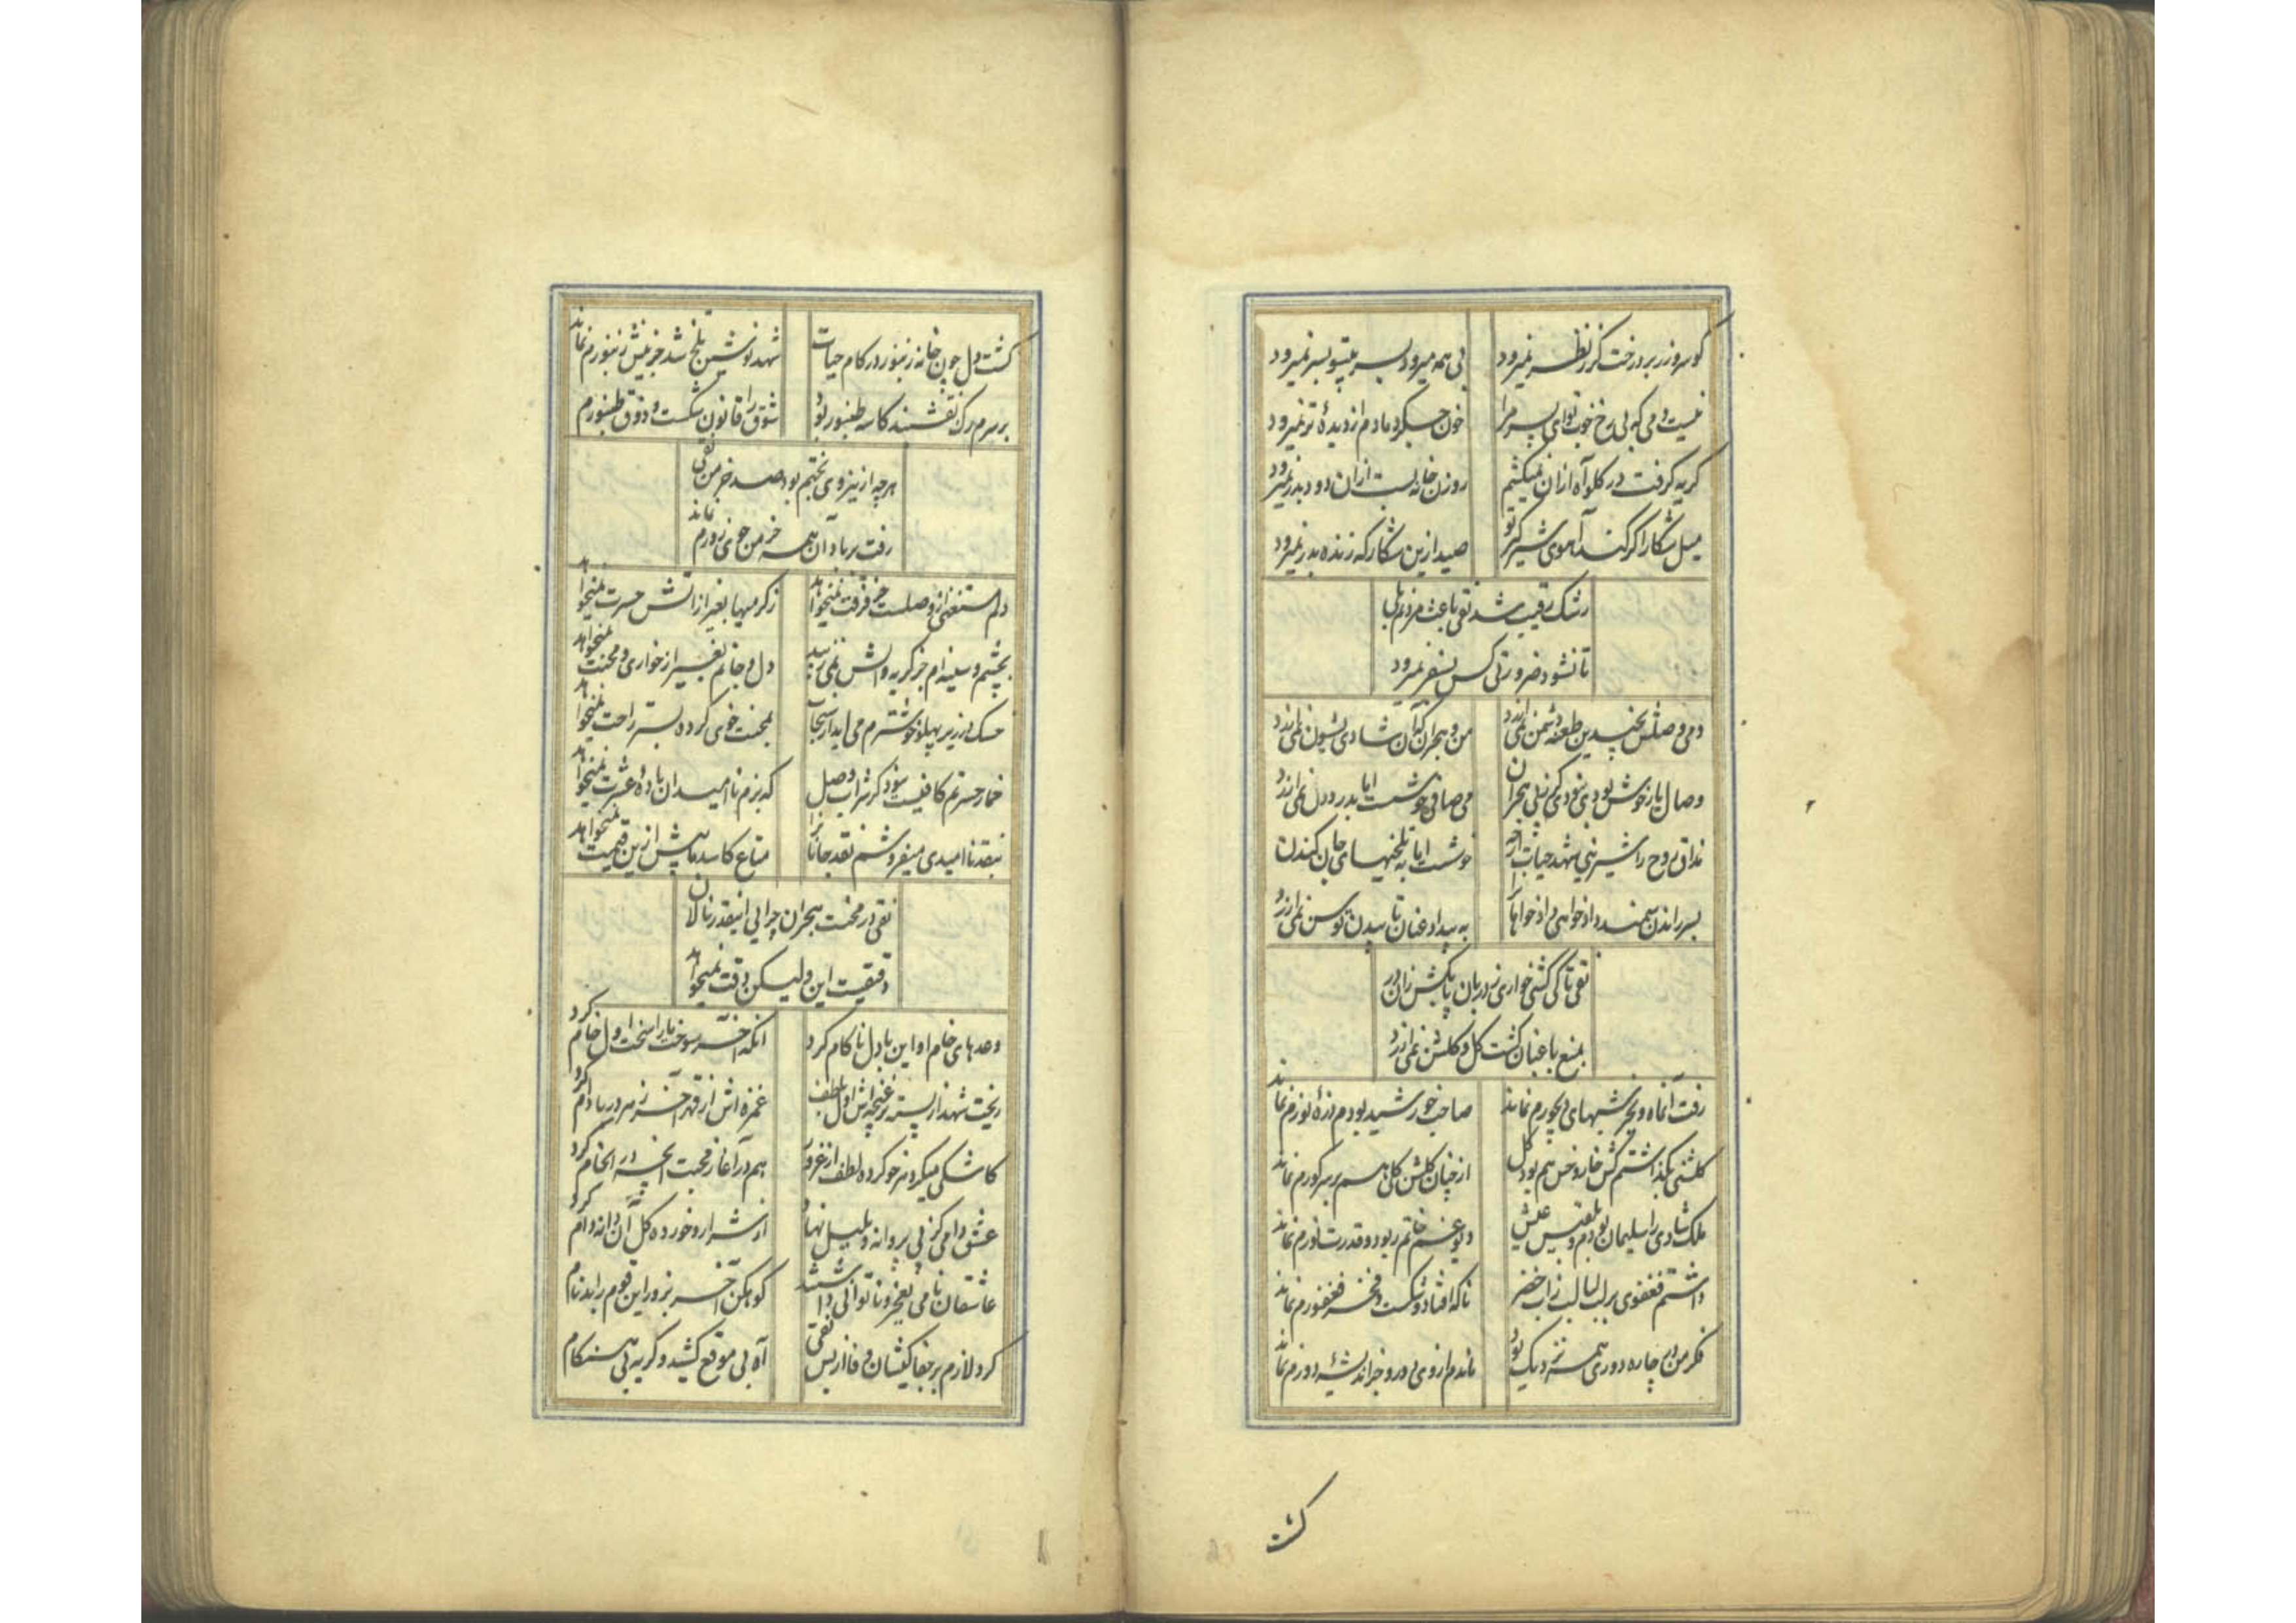 کو سر و زر برد رخت کز نظر نمیرود بی همه میرود بسر بیتو بسر نمیرود
نیست دمی که بی رخ خوب تو ای پسر مرا خون جگر دمادم از دیده تر نمیرود
گریه گرفت در گلو آه ازان نمیکشم روزن خانه بست ازان دود بدر نمیرود
میل شکار اگر کند آهوی شیرگیر تو صید ازین شکارگه زنده بدر نمیرود
رشک رقیب شد تقی باعث مردنم بلی
تا نشود ضرورتی کس بسفر نمیرود
دمی وصلش بچندین طعنه دشمن نمی ارزد من و هجران که آن شادی بشیون نمی ارزد
وصال یار خوش بودی نبودی گر پی هجران می صافی خوشست اما بدرد دل نمی ارزد
مذاق روح را شیرینی شهد حیات ارچه خوشست اما به تلخیهای جان کندن
بسر راندن سمند داد خواهی داد خواهانرا به بیداد عنان تابیدن توسن نمی ارزد
تقی تا کی کشی خواری ز دربان پا بکش زان در
بمنع باغبان گشت گل و گلشن نمی ارزد
رفت آنماه و بجز شبهای دیجورم نماند صاحب خورشید بودم ذره نورم نماند
گلشنی بگذاشتم کش خار و خس هم بود گل از چنان گلشن گلی هم بر سر گورم نماند
ملک شادی را سلیمان بودم و بلقیس عیش دیو غم خاتم ربود و قدرت نورم نماند
داشتم فغفوری بر لب لبالب زاب خضر ناگه افتاد و شکست و فخر فغفورم نماند
فکر من در چاره دوری همه نزدیک بود ماندم از وی دور و جز اندیشه دورم نماند
گشت
گشت دل چون خانه زنبور در کام حیات شهد نوشین تلخ شد جز نیش زنبورم نماند
بر سرم رگ نقشبند کاسه طنبور بود شوق را قانون شکست و ذوق طنبورم
هرچه از نیروی بختم بود صد خرمن تقی
رفت بر باد آن همه خرمن جوی زورم نماند
دلم مستغنی از وصلست جز فرقت نمیخواهد ز گرمیها بغیر از آتش حسرت نمیخواهد
بچشم و سینه ام جز گریه و آتش نمی زیبد دل و جانم بغیر از خواری و محنت نمیخواهد
خسک در زیر پهلو خوشترم می اید از سنجاب بمحنت خوی کرده بستر راحت نمیخواهد
خمار حسرتم کافیست نبود گر شراب وصل که بزم ناامیدان باده عشرت نمیخواهد
بنقد ناامیدی میفروشم نقد جانانرا متاع کاسد ما بیش ازین قیمت نمیخواهد
تقی در محنت هجران چرایی اینقدر نالان
دقیقست این ولیکن دقت نمیخواهد
وعدهای خام او این با دل ناکام کرد آنکه آخر سوخت ما را پخت اول خام کرد
ریخت شهد از پسته غنچه اش اول بلطف غمزه اش از قهر آخر زهر در بادام کرد
کاشکی میکرد نرخو کرده لطف از غرور هم در آغاز محبت آنچه در انجام کرد
عشق دامی کز پی پروانه و بلبل نهاد از شرار و خورده گل آن دانه و دام کرد
عاشقان نامی بعجز و ناتوانی داشتند کوهکن آخر بزور این قوم را بدنام
کرد لازم بر جفا کیشان وفا از بس تقی آه بی موقع کشید و گریه بی هنگام